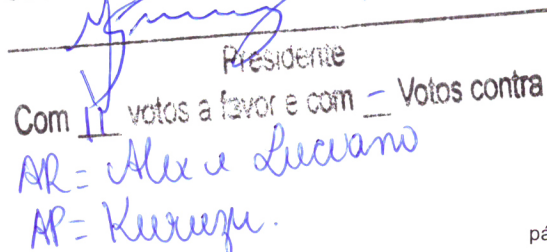 Presidente
Com 11 votos a favor e com - Votos contra
AR = Alex e Luciano
AP = Kuruzu.
pá